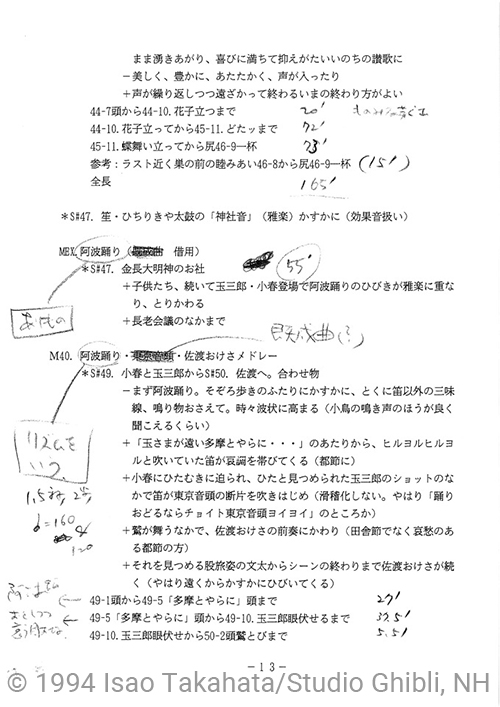 まま湧きあがり、喜びに満ちて抑えがたいいのちの讃歌に
－美しく、豊かに、あたたかく、声が入ったり
＋声が繰り返しつつ遠ざかって終わるいまの終わり方がよい
44-7頭から44-10.花子立つまで 20'
44-10.花子立ってから45-11.どたッまで 72'
45-11.蝶舞い立ってから尻46-9一杯 73'
参考：ラスト近く巣の前の睦みあい46-8から尻46-9一杯 (15')
全長 165'
＊S#47. 笙・ひちりきや太鼓の「神社音」（雅楽）かすかに（効果音扱い）
MEX.阿波踊り（ 借用）
＊S#47. 金長大明神のお社 55'
＋子供たち、続いて玉三郎・小春登場で阿波踊りのひびきが雅楽に重な
り、とりかわる
ありもの
＋長老会議のなかまで
既成曲(?)
M40. 阿波踊り・東京音頭・佐渡おけさメドレー
＊S#49. 小春と玉三郎からS#50. 佐渡へ。合わせ物
－まず阿波踊り。そぞろ歩きのふたりにかすかに、とくに笛以外の三味
線、鳴り物おさえて。時々波状に高まる（小鳥の鳴き声のほうが良く
聞こえるくらい）
リズムを
＋「玉さまが遠い多摩とやらに・・・」のあたりから、ヒルヨルヒルヨ
ルと吹いていた笛が哀調を帯びてくる（都節に）
＋小春にひたむきに迫られ、ひたと見つめられた玉三郎のショットのな
かで笛が東京音頭の断片を吹きはじめ（滑稽化しない。やはり「踊り
おどるならチョイト東京音頭ヨイヨイ」のところか）
＋鷲が舞うなかで、佐渡おけさの前奏にかわり（田舎節でなく哀愁のあ
る都節の方）
＋それを見つめる股旅姿の文太からシーンの終わりまで佐渡おけさが続
く（やはり遠くからかすかにひびいてくる）
=160
120
49-1頭から49-5「多摩とやらに」頭まで 27'
49-5「多摩とやらに」頭から49-10. 玉三郎眼伏せるまで 37.5'
49-10. 玉三郎眼伏せから50-2頭鷲とびまで 5.5'
－１３－
© 1994 Isao Takahata/Studio Ghibli, NH